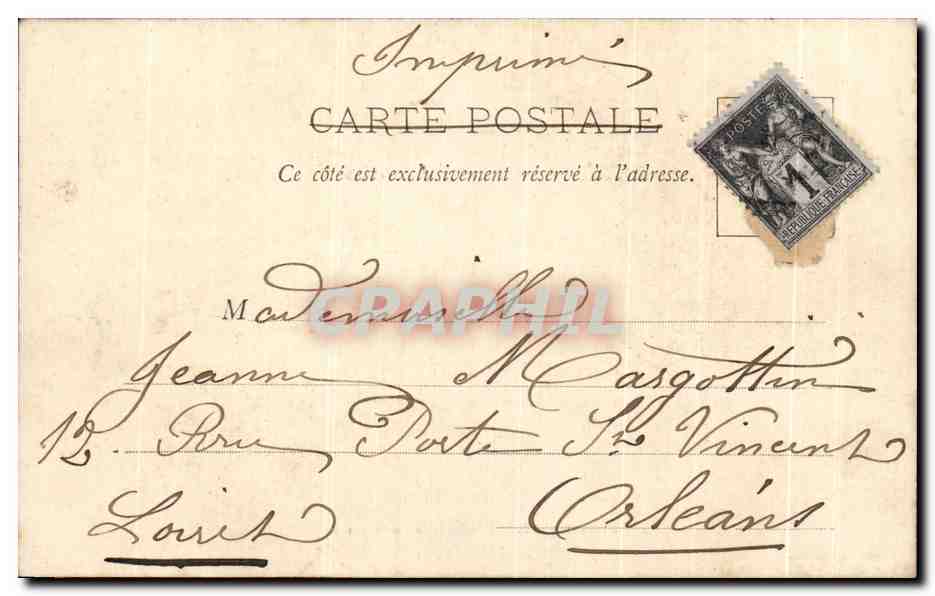 Imprimé
CARTE POSTALE
Ce côté est exclusivement réservé à l'adresse.
POSTES
1
REPUBLIQUE FRANÇAISE
Mademoiselle
CPAPHIL
Jeanne Margottin
12. Rue Porte St Vincent
Orléans
Loiret